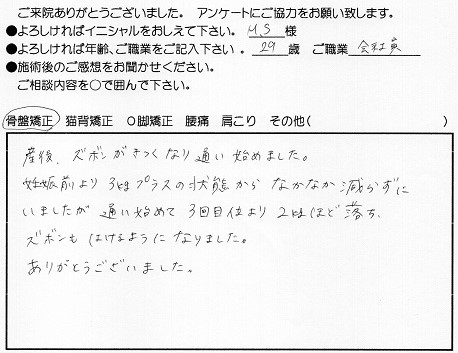 ご来院ありがとうございました。 アンケートにご協力をお願い致します。
●よろしければイニシャルをおしえて下さい。 M.S 様
●よろしければ年齢、ご職業をご記入下さい。 29 歳 ご職業 会社員
●施術後のご感想をお聞かせください。
ご相談内容を○で囲んで下さい。
骨盤矯正 猫背矯正 O脚矯正 腰痛 肩こり その他( )
産後、ズボンがきつくなり通い始めました。
妊娠前より3kgプラスの状態からなかなか減らずに
いましたが通い始めて3回目位より2kgほど落ち、
ズボンもはけるようになりました。
ありがとうございました。